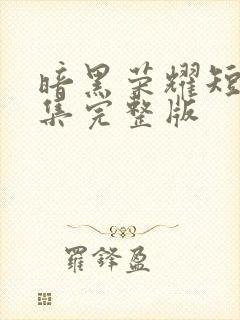 暗黑荣耀短
集完整版
罗锋盈